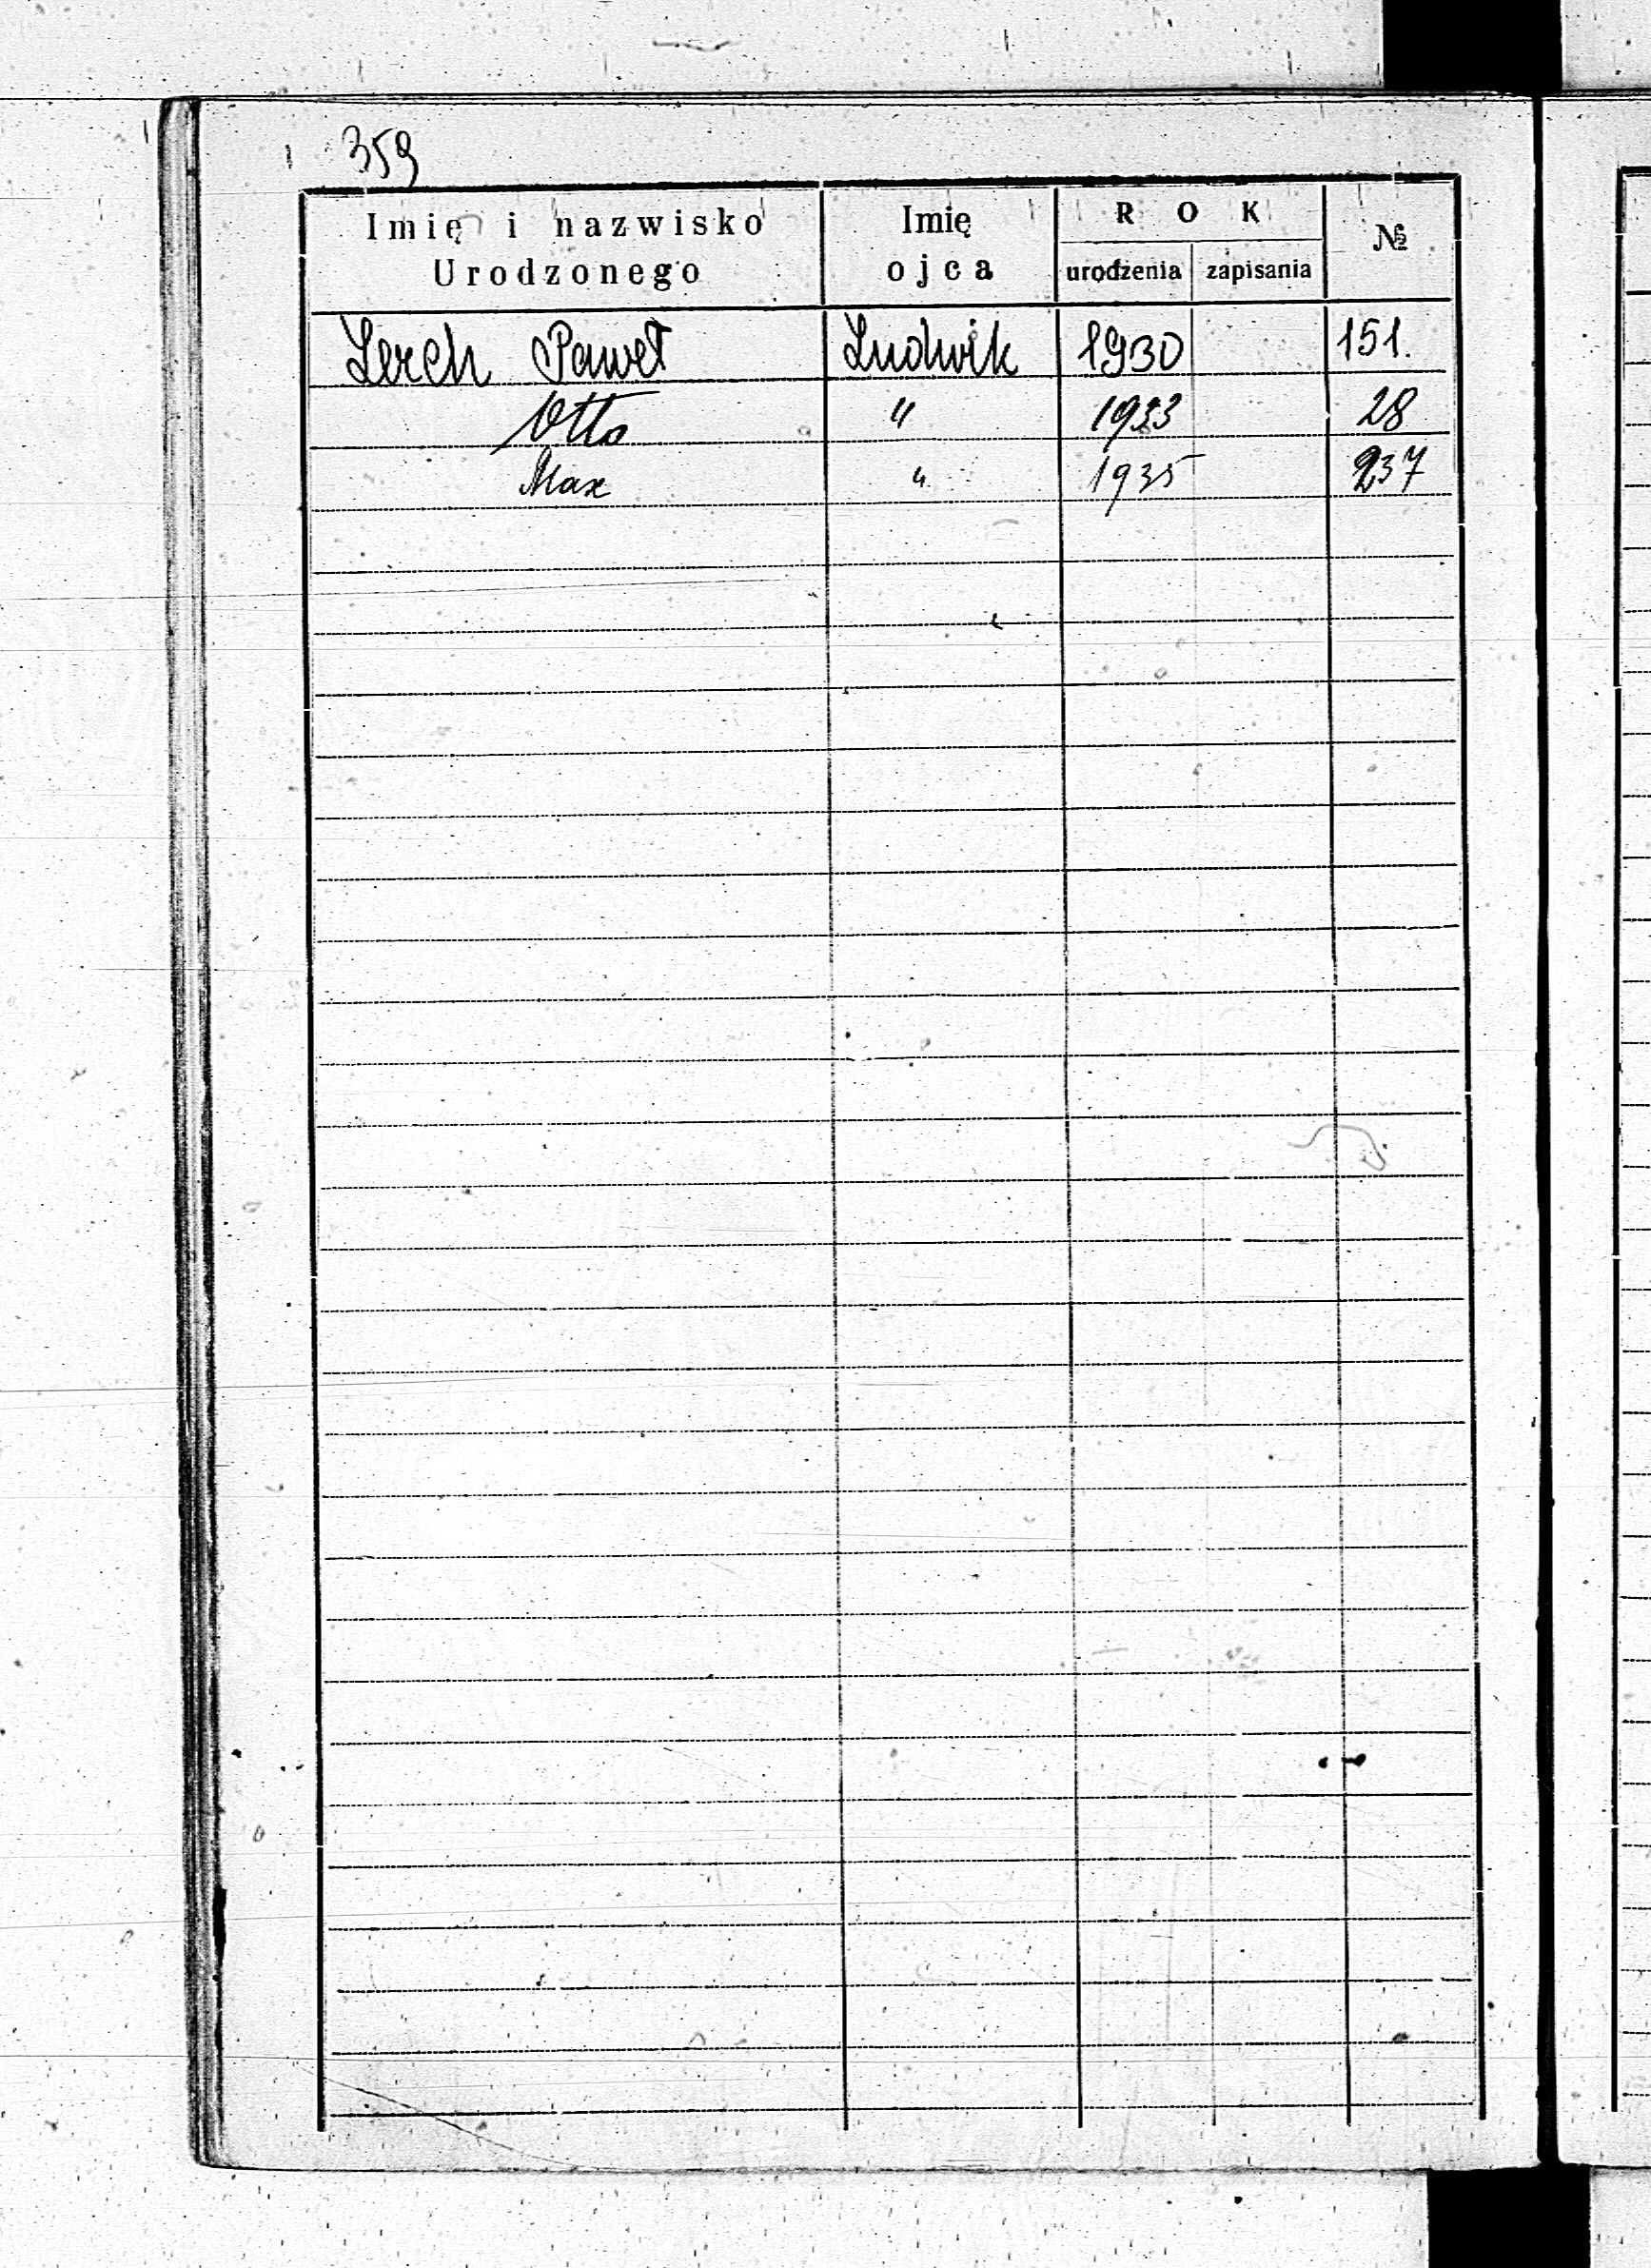 359
Imię i nazwisko Urodzonego
Imię ojca
ROK
№
urodzenia zapisania
Lerch Paweł Ludwik 1930 151.
Otto " 1933 28
Max " 1935 237